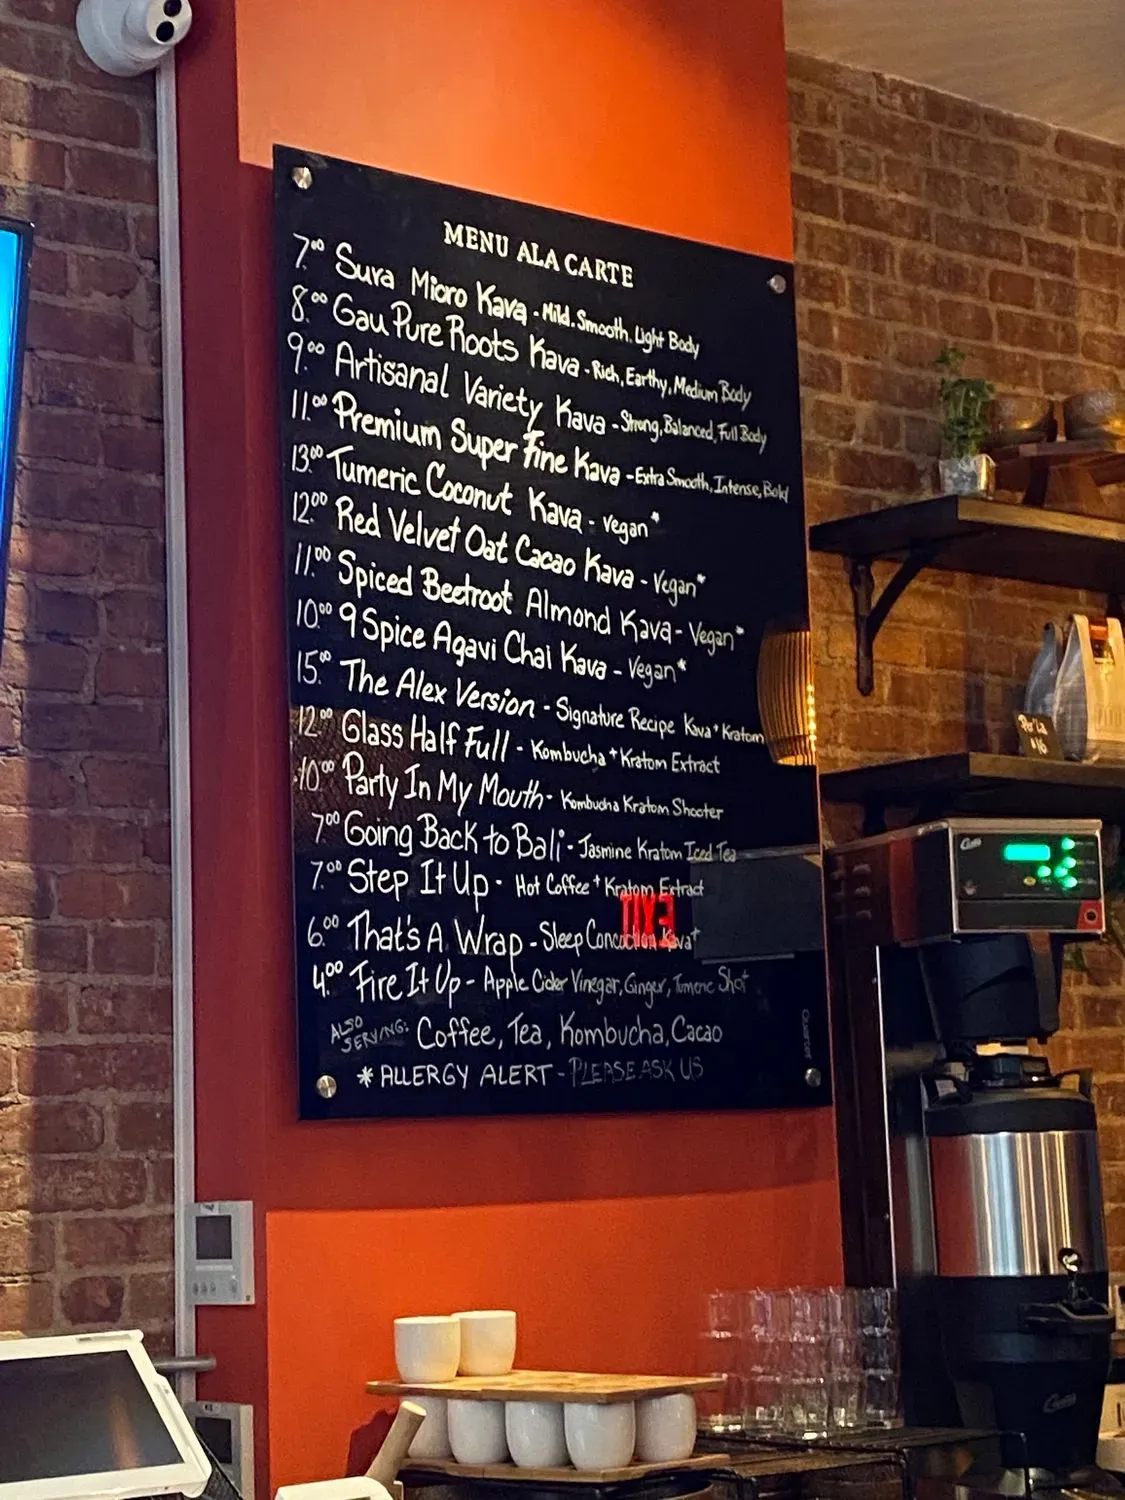 MENU ALA CARTE
7.00 Sura Micro Kava - Mild. Smooth, Light Body
8.00 Gau Pure Roots Kava - Rich, Earthy, Medium Body
9.00 Artisanal Variety Kava - Strong, Balanced, Full Body
11.00 Premium Super Fine Kava - Extra Smooth, Intense, Bold
13.00 Tumeric Coconut Kava - Vegan*
12.00 Red Velvet Oat Cacao Kava - Vegan*
11.00 Spiced Beetroot Almond Kava - Vegan*
10.00 9 Spice Agavi Chai Kava - Vegan*
15.00 The Alex Version - Signature Recipe Kava + Kratom
12.00 Glass Half Full - Kombucha + Kratom Extract
10.00 Party In My Mouth - Kombucha Kratom Shooter
7.00 Going Back to Bali - Jasmine Kratom Iced Tea
7.00 Step It Up - Hot Coffee + Kratom Extract
6.00 That's A Wrap - Sleep Concoction Kava+
4.00 Fire It Up - Apple Cider Vinegar, Ginger, Tumeric Shot
ALSO SERVING: Coffee, Tea, Kombucha, Cacao
* ALLERGY ALERT - PLEASE ASK US
EXIT
Curtis
Curtis